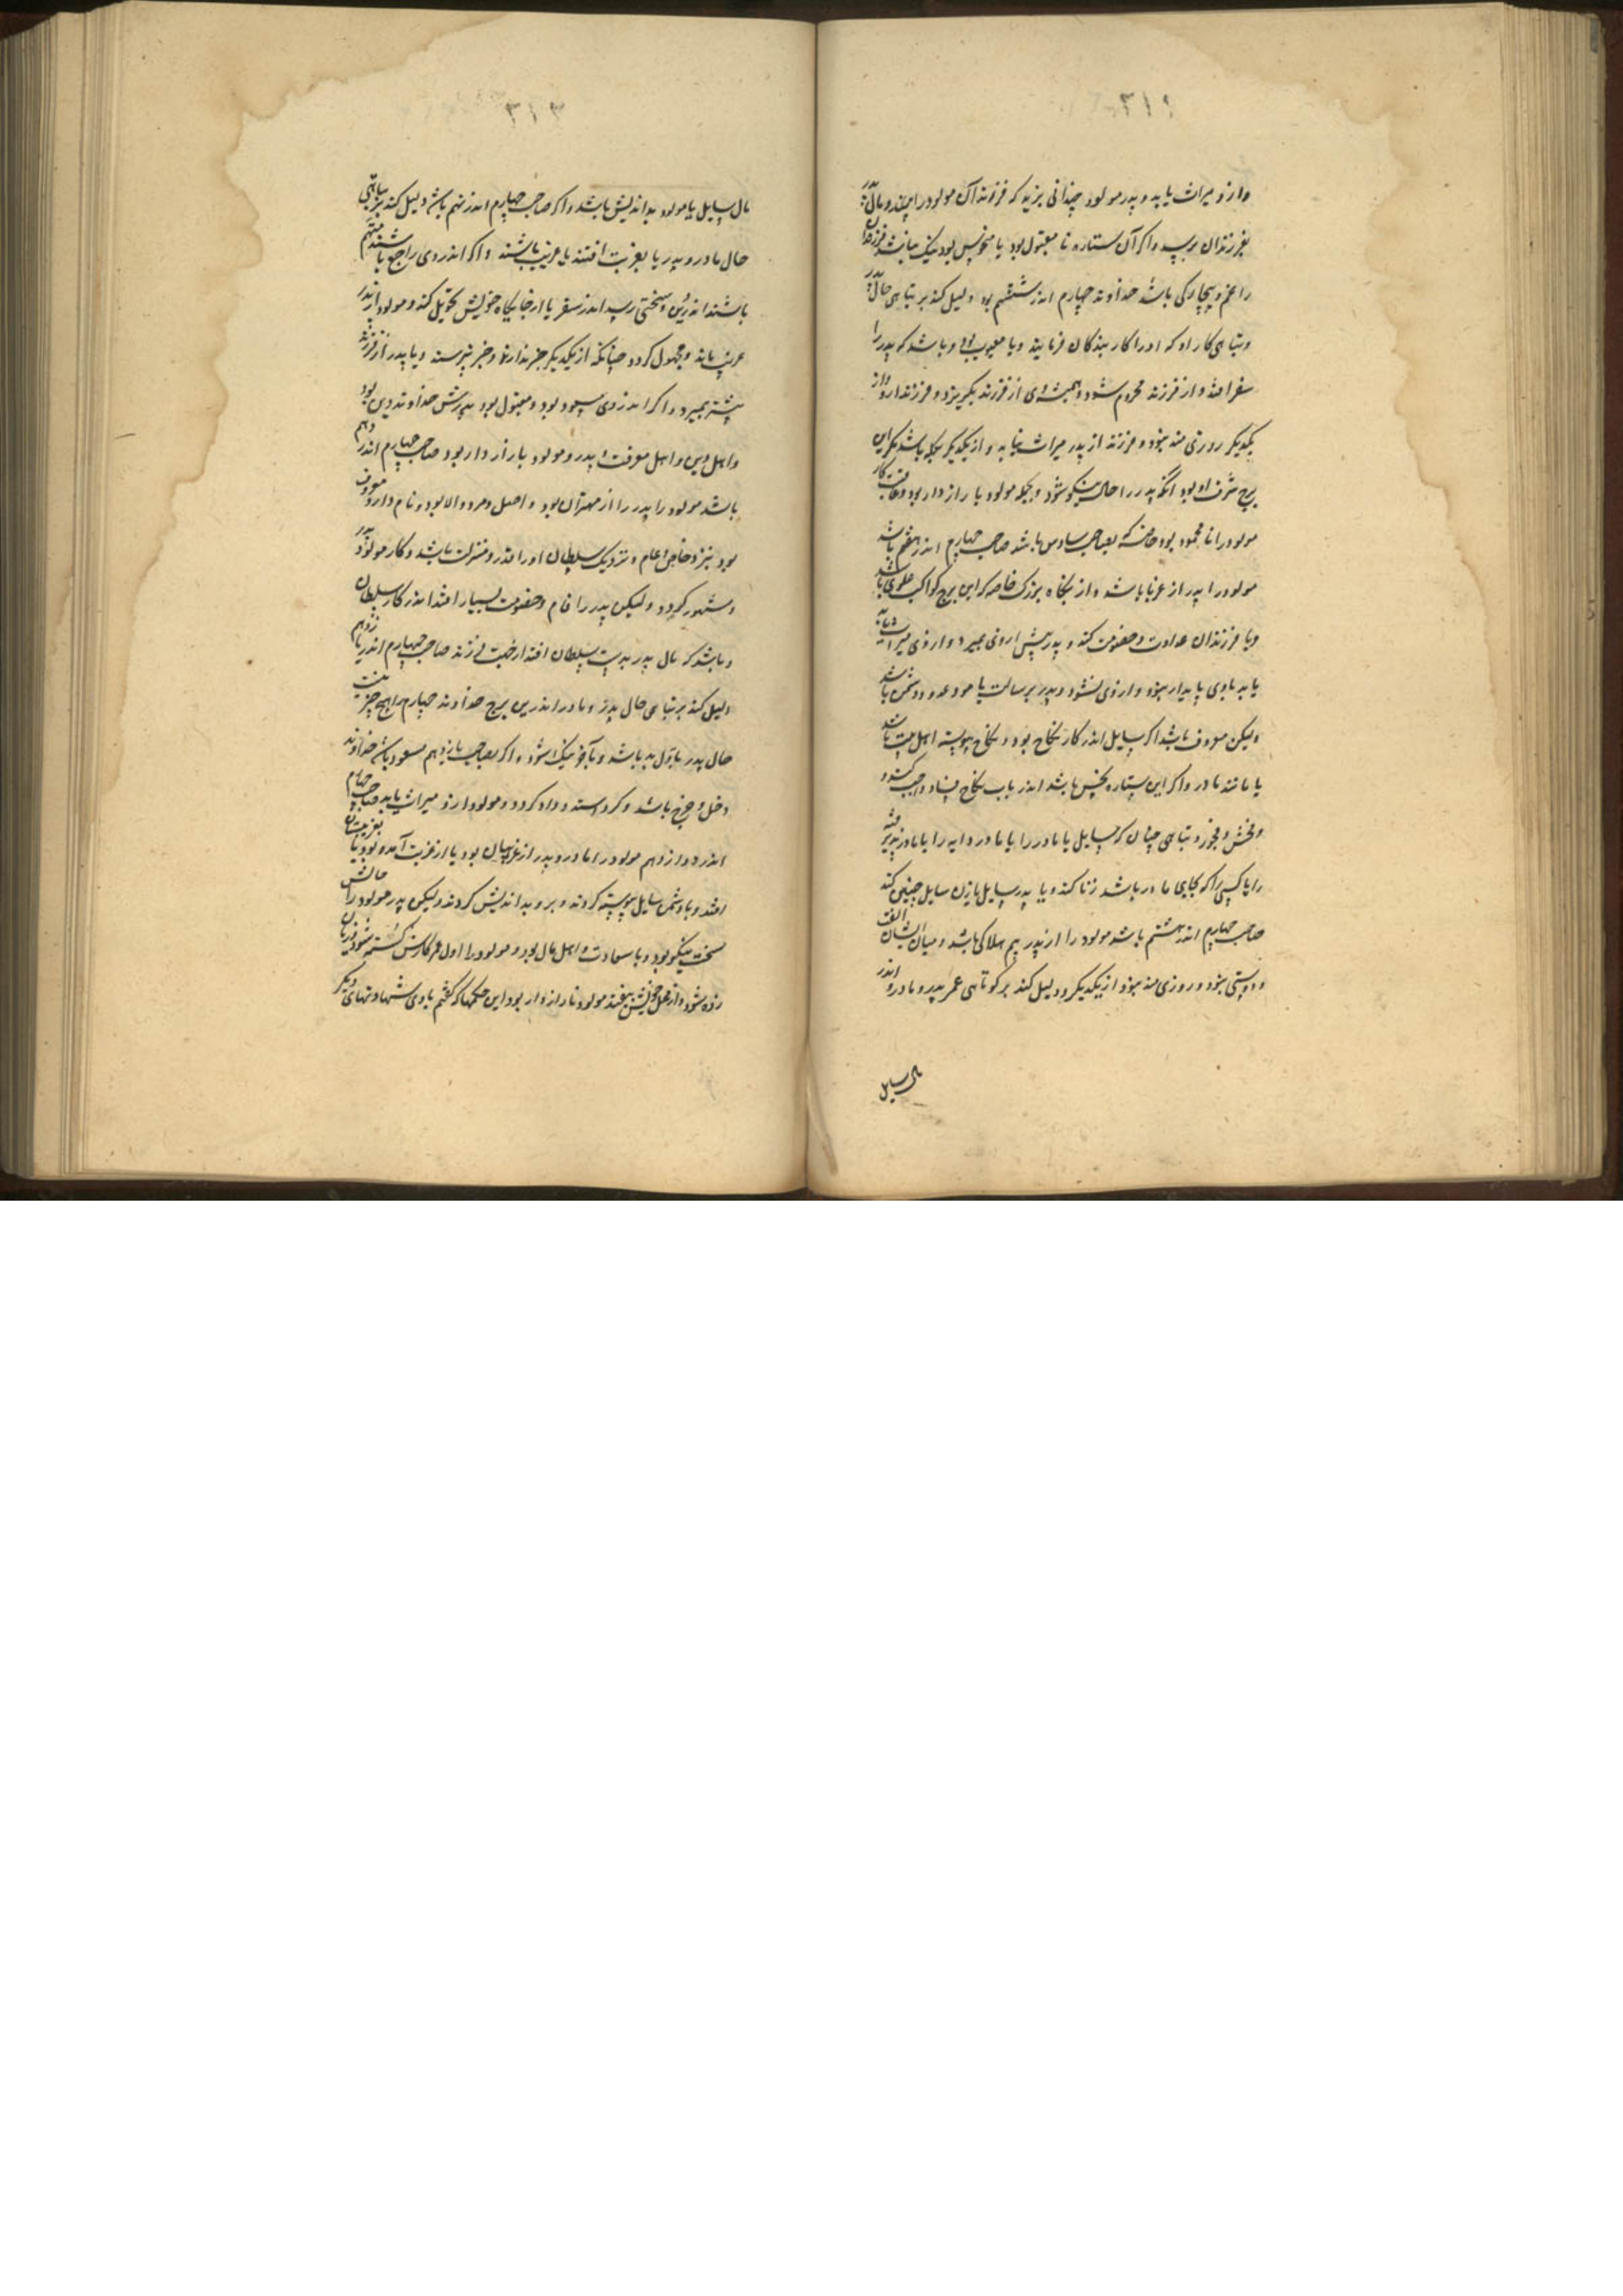 ۳۱۲
وازو میراث یابد و پدر مولود چندانی بزید که فرزند آن مولود را ببیند و مال پدر
بفرزندان برسد و اگر آن ستاره نا مقبول بود یا منحوس بود نیک نباشد فرزندان
را غم و بیچارگی باشد خداوند چهارم اندر ششم بود دلیل کند بر تباهی حال پدر
و تباهی کار او که او را کار بندگان فرمایند و یا معیوب بود و باشد که پدر را
سفر افتد و از فرزند محروم شود و همیشه وی از فرزند بگریزد و فرزند ازو و از
یکدیگر روزی مند نبود و فرزند از پدر میراث نیابد و از یکدیگر بگریزد باشد مگر این
برج شرف او بود آنگه پدر را حال نیکو شود و مولود با راز دار بود و عاقبت کار
مولود را نا محمود بود خاصه که صاحب سادس باشد صاحب چهارم اندر هفتم باشد
مولود را پدر از غربا باشد و از بنگاه بزرگ خاصه که این برج کواکب علوی باشد
و با فرزندان عداوت و خصومت کند و پدر پیش از وی بمیرد و از وی میراث یابد
یابد با وی پایدار نبود و از وی نشنود و پدر برسالت یا مر و عدو و دشمن باشد
ولیکن معروف باشد اگر سایل اندر کار نکاح بود و نکاح پیوسته اهل بیت باشد
یا مانند مادر و اگر این ستاره نحس باشد اندر باب نکاح فساد واجب کند و
و فحش و فجور و تباهی چنان که سایل با مادر را یا مادر دایه را یا مادر پذیرفته
را یا کسی را که بجای مادر باشد زنا کند و یا پدر سایل با زن سایل چنین کند
صاحب چهارم اندر هشتم باشد مولود را از پدر بیم هلاکی باشد و میان ایشان الفت
و دوستی نبود و روزی مند نبود از یکدیگر و دلیل کند بر کوتاهی عمر پدر و مادر و اندر
مال سایل
۳۱۳
مال سایل یا مولود بد اندیش باشد و اگر صاحب چهارم اندر نهم باشد دلیل کند بر تباهی
حال مادر و پدر یا بغربت افتند یا غریب باشند و اگر اندر وی راجع باشند متهم
باشند اندر دین و سختی رسد اندر سفر یا از جایگاه خویش تحویل کند و مولود از پدر
غریب ماند و مجهول گردد چنانکه از یکدیگر خبر ندارند و خبر نپرسند و یا پدر از فرزند
پیشتر بمیرد و اگر اندر وی مسعود بود و مقبول بود پدرش خداوند دین بود
و اهل دین و اهل معرفت و پدر و مولود باراز دار بود صاحب چهارم اندر دهم
باشد مولود را پدر را از مهتران بود و اصل و مرد والا بود و نام دارد و معروف
بود بنزد خاص و عام و نزدیک سلطان او را قدر و منزلت باشد و کار مولود پدر
و مشهور گردد و لیکن پدر را فام و خصومت بسیار افتد اندر کار سلطان
و باشد که مال پدر بدست سلطان افتد از جهت فرزند صاحب چهارم اندر یازدهم
دلیل کند بر تباهی حال پدر و مادر اندرین برج خداوند چهارم را هیچ چیز نیست
حال پدر باول بد باشد و بآخر نیک شود و اگر صاحب یازدهم مسعود باشد خداوند
دخل و خرج باشد و گرد ستد و داد گردد و مولود ازو میراث یابد صاحب چهارم
اندر دوازدهم مولود را مادر و پدر از غریبان بود یا از غربت آمده بود و یا بغربت
افتد و با دشمن سایل پیوسته گردند و برو بد اندیش گردند ولیکن پدر مولود را حالش
سخت نیکو بود و با سعادت و اهل مال بود و مولود را اول عمر کارش گسسته شود و زیان
زده شود و از محل خویش بیفتد مولود نا راز دار بود این حکمها که گفتم با وی شهادتهای دیگر